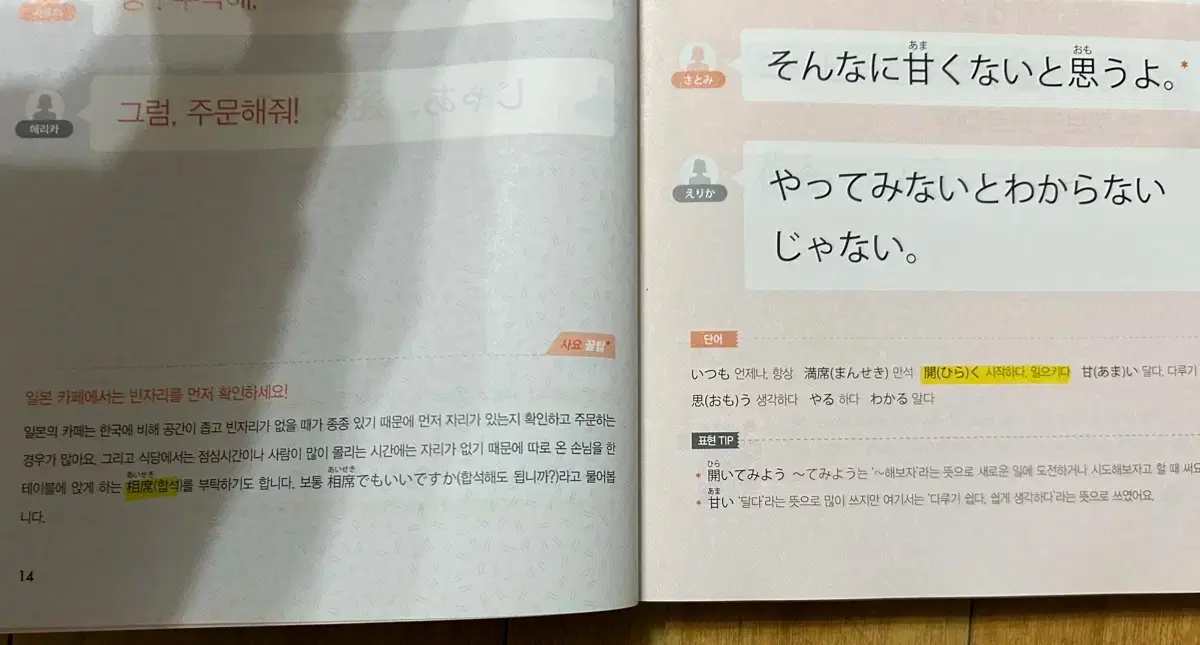 에리카
그럼, 주문해줘!
사요 꿀팁*
일본 카페에서는 빈자리를 먼저 확인하세요!
일본의 카페는 한국에 비해 공간이 좁고 빈자리가 없을 때가 종종 있기 때문에 먼저 자리가 있는지 확인하고 주문하는
경우가 많아요. 그리고 식당에서는 점심시간이나 사람이 많이 몰리는 시간에는 자리가 없기 때문에 따로 온 손님을 한
あいせき あいせき
테이블에 앉게 하는 相席(합석)를 부탁하기도 합니다. 보통 相席でもいいですか(합석해도 됩니까?)라고 물어봅
니다.
14
さとみ
あま おも
そんなに甘くないと思うよ。*
えりか
やってみないとわからない
じゃない。
단어
いつも 언제나, 항상 満席(まんせき) 만석 開(ひら)く 시작하다, 일으키다 甘(あま)い 달다, 다루기
思(おも)う 생각하다 やる 하다 わかる 알다
표현 TIP
ひら
• 開いてみよう ~てみよう는 '~해보자'라는 뜻으로 새로운 일에 도전하거나 시도해보자고 할 때 써요
あま
• 甘い '달다'라는 뜻으로 많이 쓰지만 여기서는 '다루기 쉽다, 쉽게 생각하다'라는 뜻으로 쓰였어요.